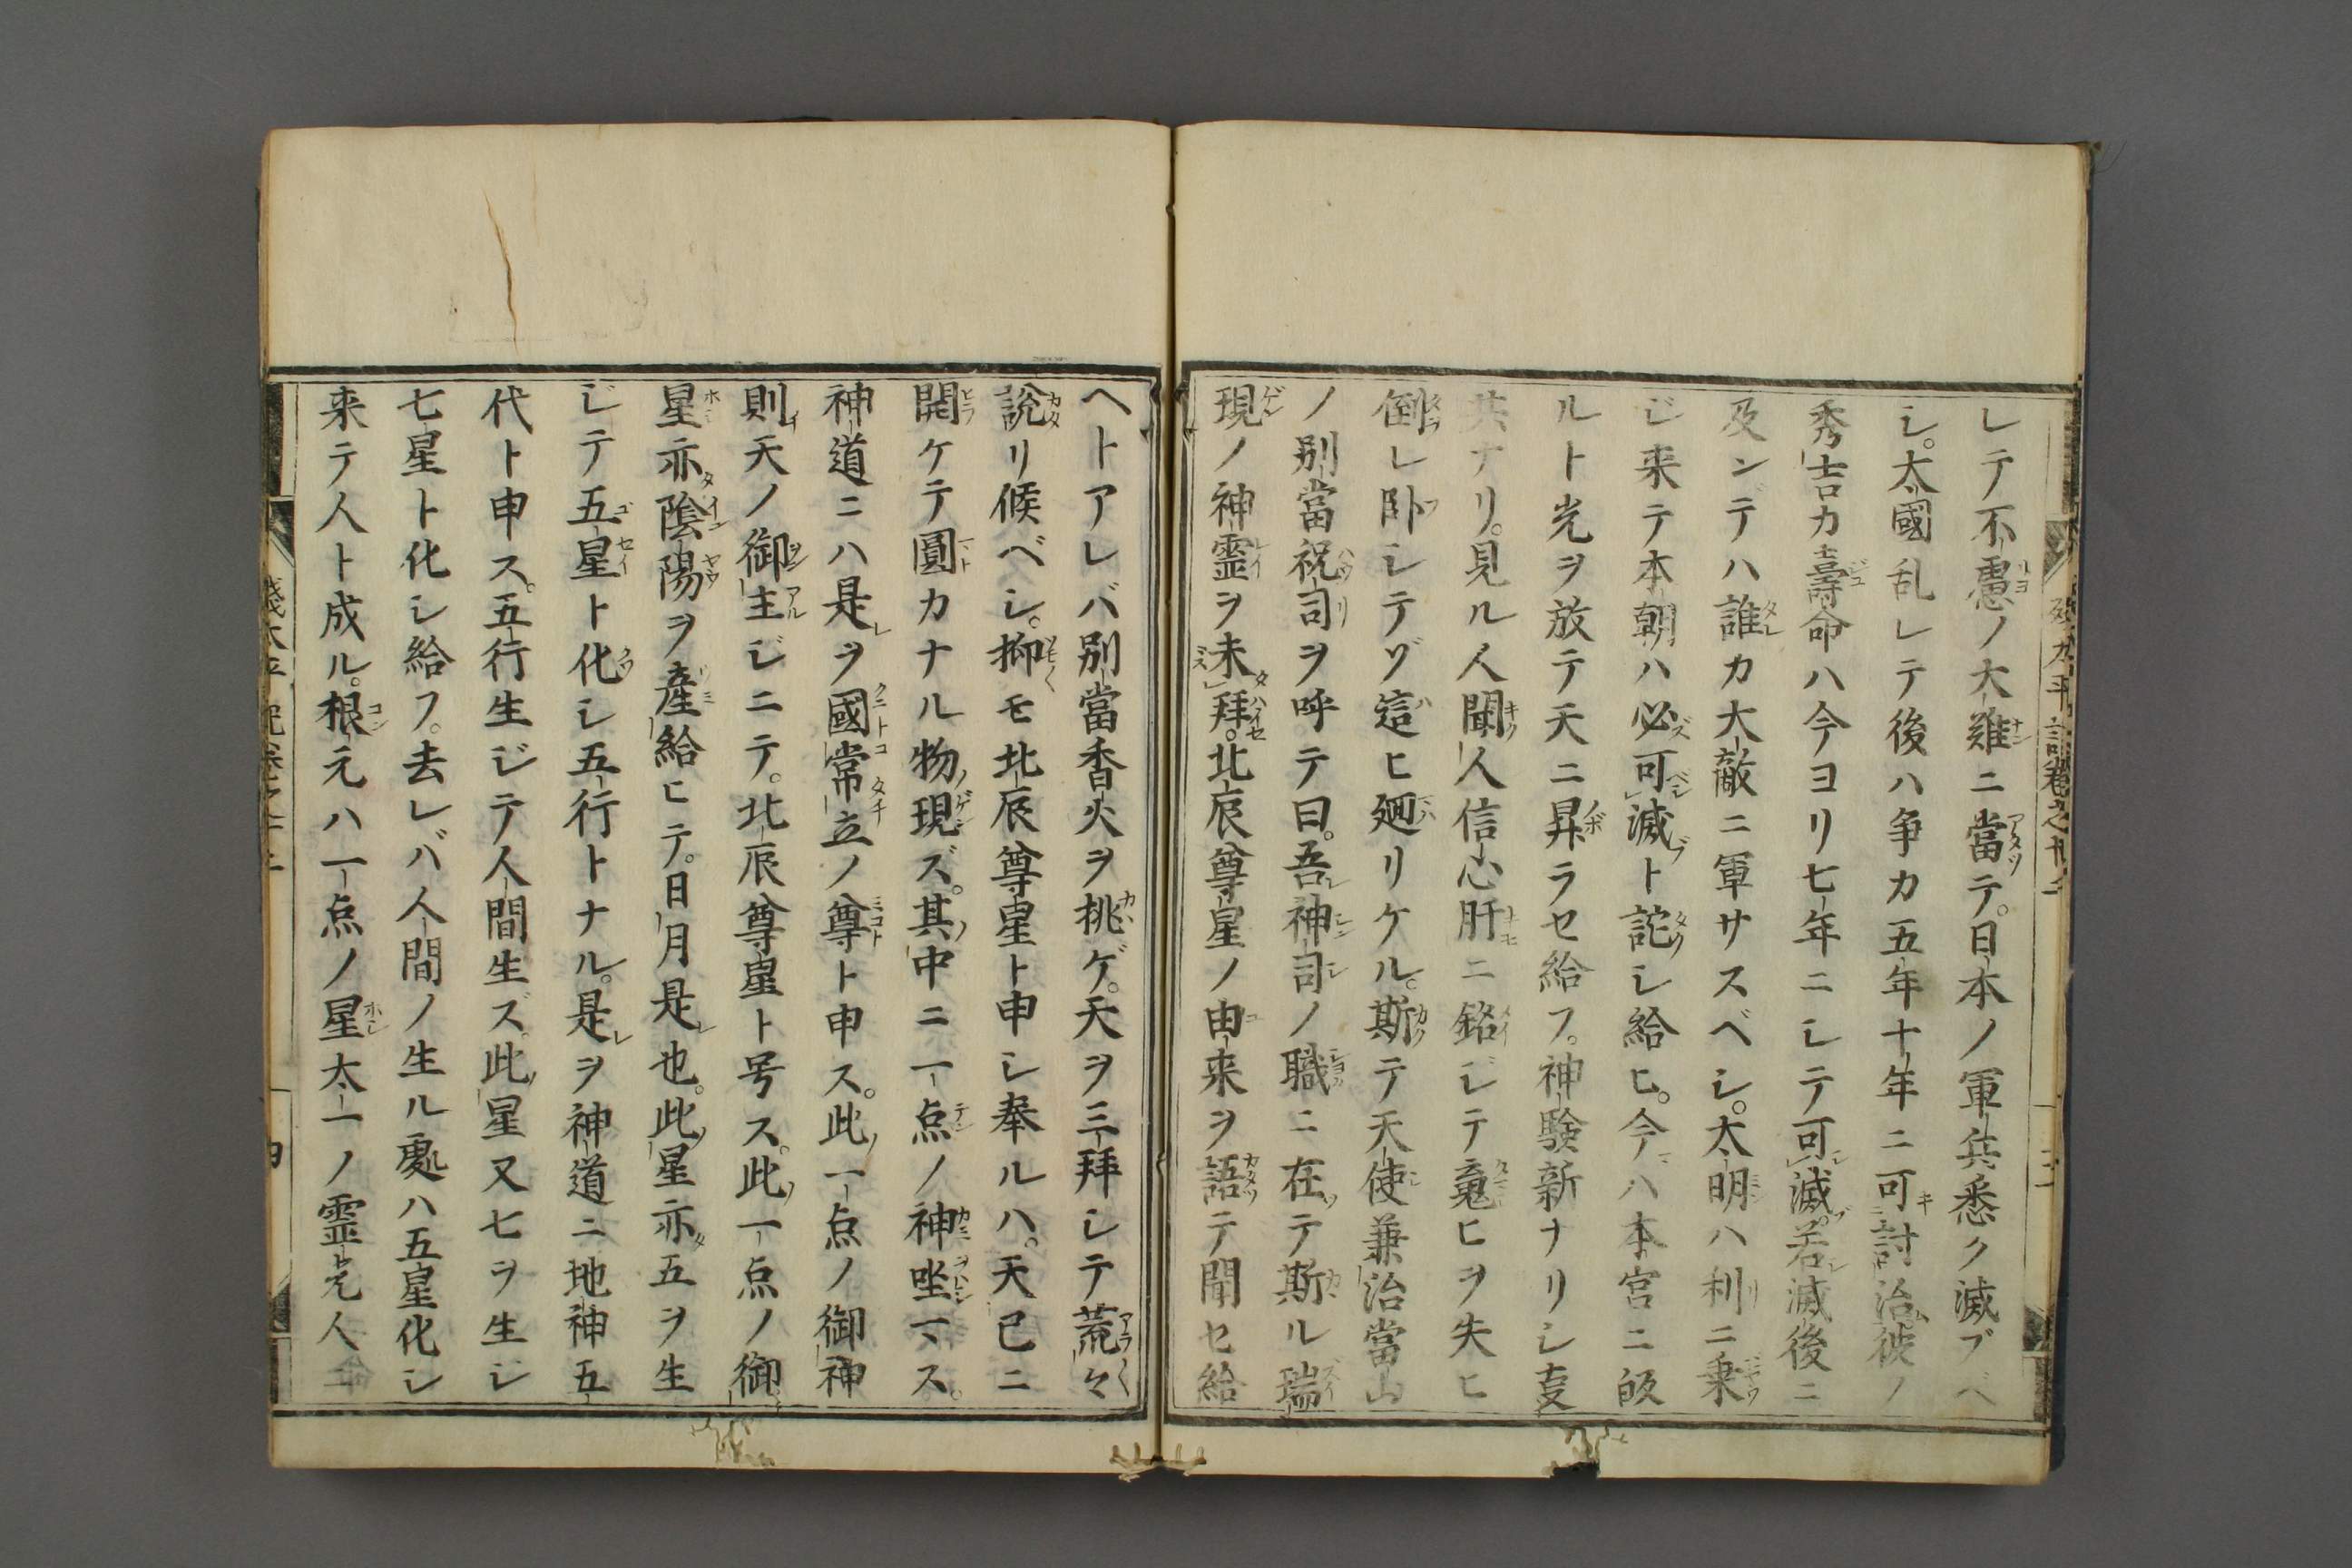 シテ不慮ノ大難ニ當テ。日本ノ軍兵悉ク滅ブベ
シ。太國乱レテ後ハ争カ五年十年ニ可討治彼ノ
秀吉カ壽命ハ今ヨリ七年ニシテ可滅。若滅後ニ
及ンデハ誰カ大敵ニ軍サスベシ。太明ハ利ニ乗
ジ来テ本朝ハ必可滅ト詫シ給ヒ。今ハ本宮ニ皈
ルト光ヲ放テ天ニ昇ラセ給フ。神験新ナリシ叓
共ナリ。見ル人聞人信心肝ニ銘ジテ竟ヒヲ失ヒ
倒レ卧シテゾ這ヒ廻リケル。斯テ天使兼治當山
ノ別當祝司ヲ呼テ曰。吾神司ノ職ニ在テ斯ル瑞
現ノ神霊ヲ未拜。北辰尊星ノ由来ヲ語テ聞セ給
ヘトアレバ別當香火ヲ挑ゲ。天ヲ三拜シテ荒々
說リ候ベシ。抑モ北辰尊星ト申シ奉ルハ。天已ニ
開ケテ圓カナル物現ズ。其中ニ一点ノ神坐マス。
神道ニハ是ヲ國常立ノ尊ト申ス。此一点ノ御神
則天ノ御主ジニテ。北辰尊星ト号ス。此一点ノ御
星亦陰陽ヲ産給ヒテ。日月是也。此星亦五ヲ生
ジテ五星ト化シ五行トナル。是ヲ神道ニ地神五
代ト申ス。五行生ジテ人間生ズ。此星又七ヲ生シ
七星ト化シ給フ。去レバ人間ノ生ル處ハ五星化シ
来テ人ト成ル。根元ハ一点ノ星太一ノ霊ト元人